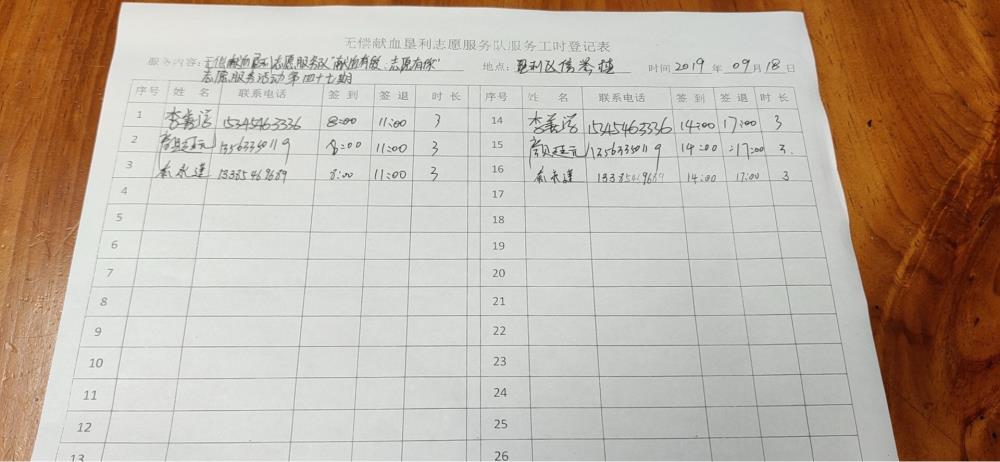 无偿献血垦利志愿服务队服务工时登记表
服务内容：无偿献血垦利志愿服务队"献血有您、志愿有你" 地点：垦利区信誉楼 时间 2019 年 09 月 18 日
志愿服务活动第四十七期
序号 姓 名 联系电话 签 到 签 退 时 长 序号 姓 名 联系电话 签 到 签 退 时 长
1 李善学 15345463336 8:00 11:00 3 14 李善学 15345463336 14:00 17:00 3
2 13563350119 8:00 11:00 3 15 13563350119 14:00 :17:00 3.
3 永建 13385469689 8:00 11:00 3 16 永建 13385469689 14:00 17:00 3
4 17
5 18
6 19
7 20
8 21
9 22
10 23
11 24
12 25
13 26